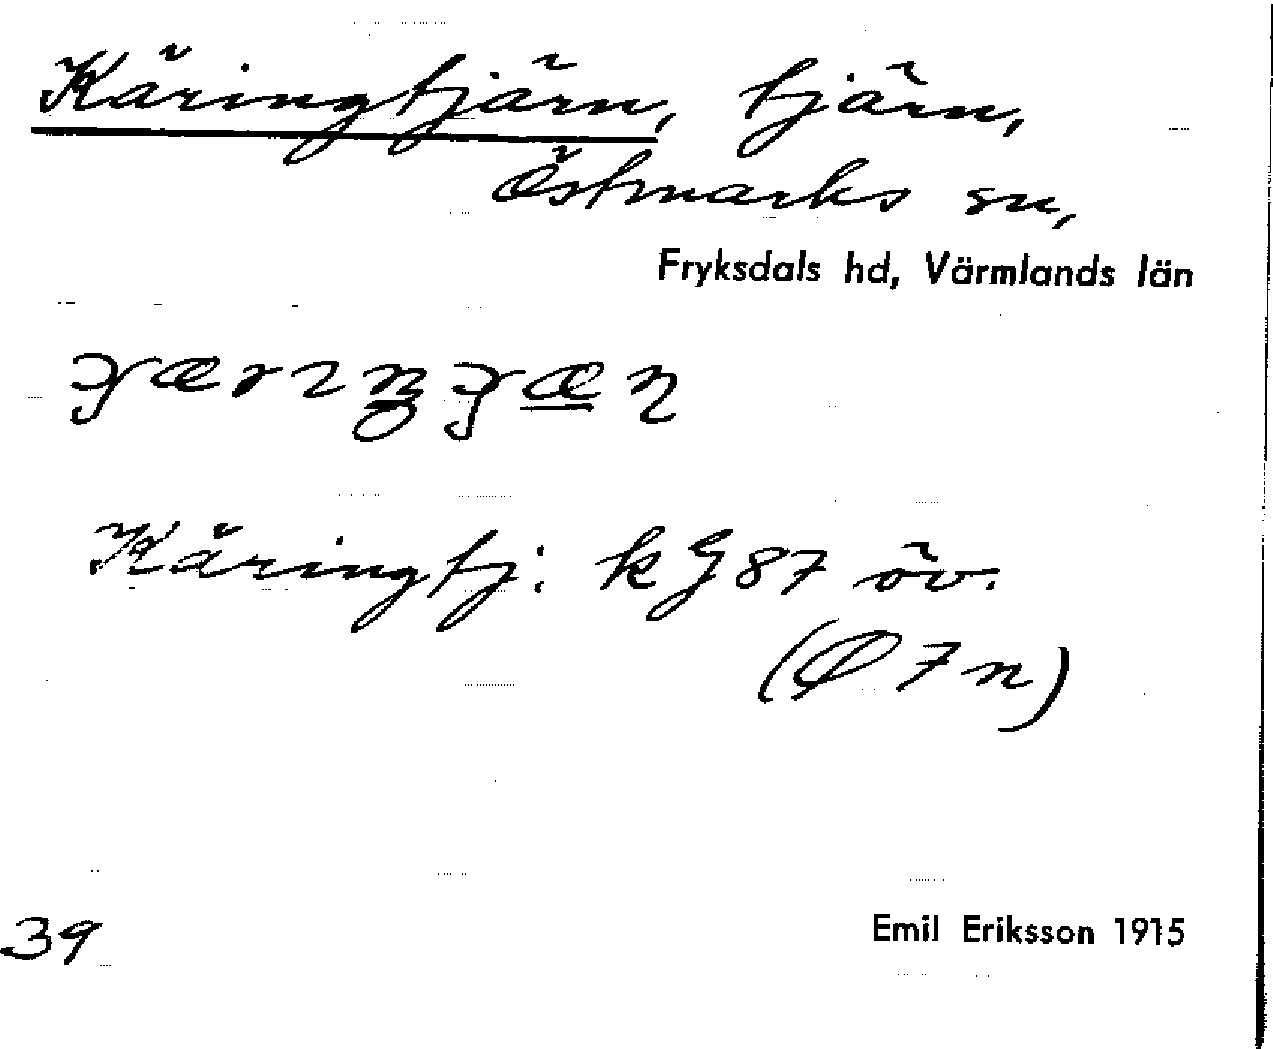 Käringtjärn, tjärn,
Östmarks sn,
Fryksdals hd, Värmlands län
Käringtj: k G87 öv.
(Ø 7 n)
39
Emil Eriksson 1915